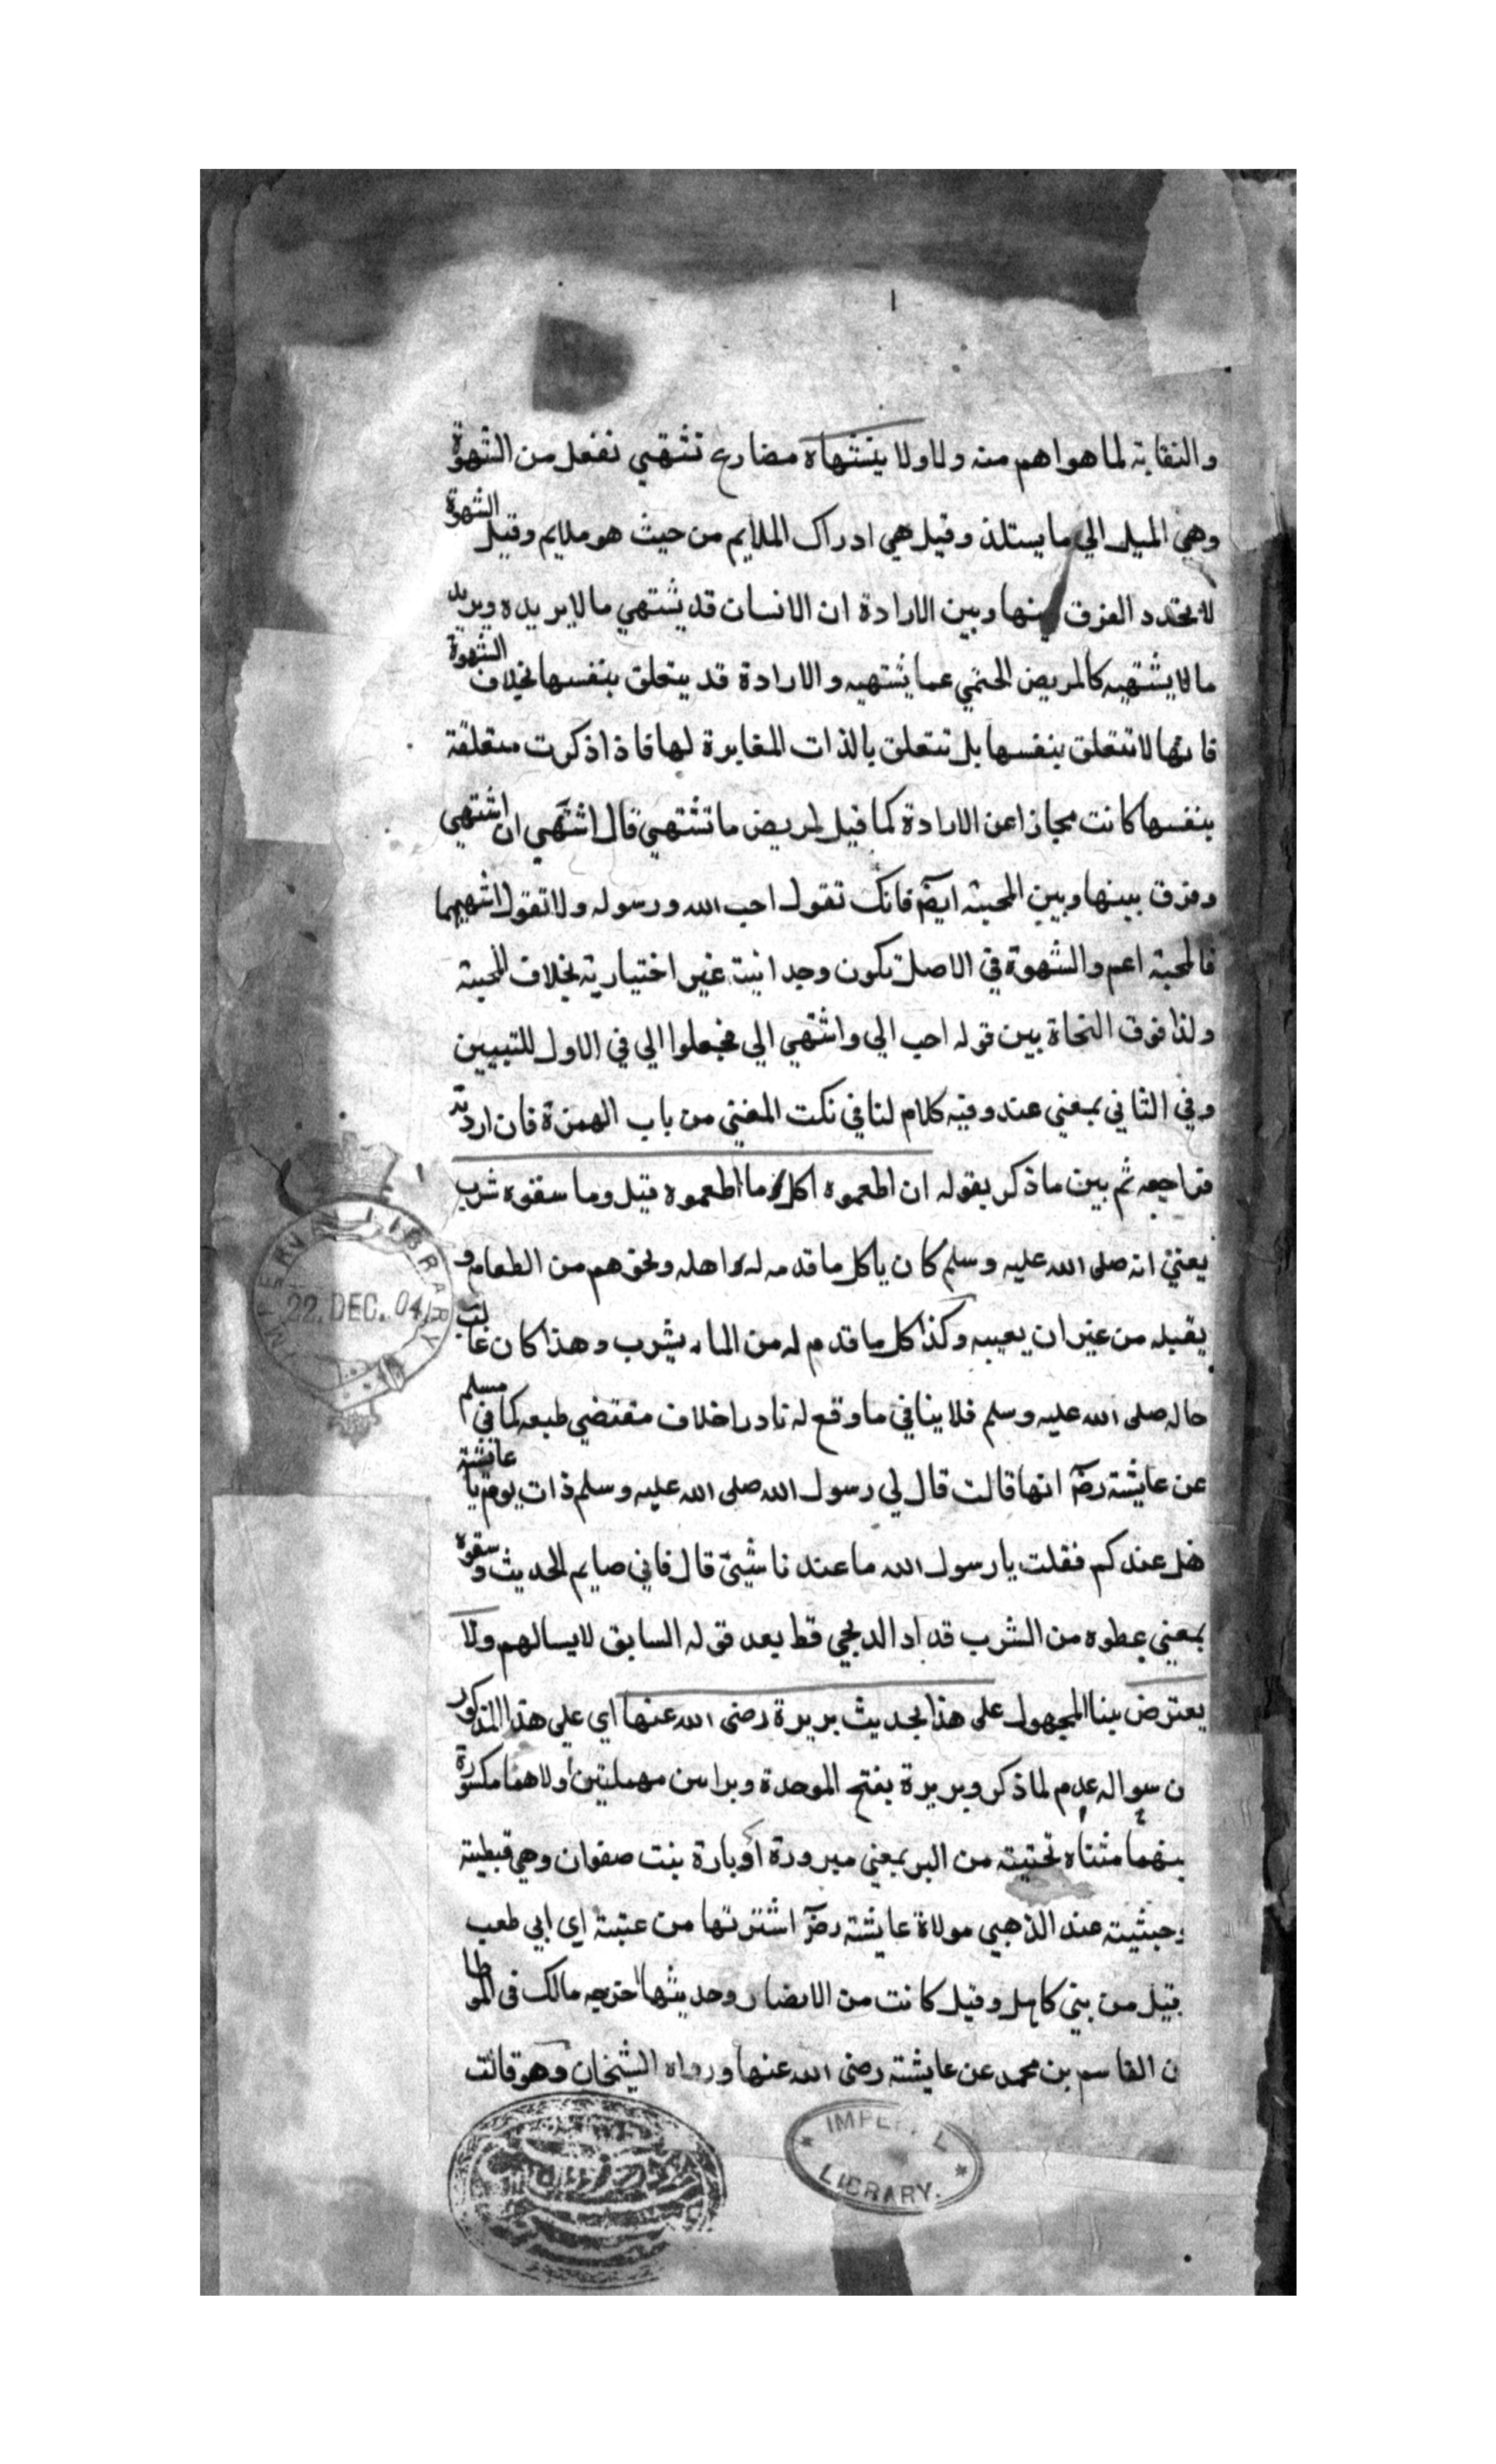 والتفاته لما هو اهم منه ولا ولا يتشهاه مضارع تشهي تفعل من الشهوة
وهي الميل الي ما يستلذ وقيل هي ادراك الملايم من حيث هو ملايم وقيل الشهوة
لا تحدد الفرق بينها وبين الارادة ان الانسان قد يشتهي ما لا يريده ويريد
ما لا يشتهيه كالمريض المحتمي عما يشتهيه والارادة قد يتعلق بنفسها بخلاف الشهوة
فانها لا تتعلق بنفسها بل تتعلق بالذات المغايرة لها فاذا ذكرت متعلقة
بنفسها كانت مجازا عن الارادة كما قيل لمريض ما تشتهي قال اشتهي ان اشتهي
وفرق بينها وبين المحبة ايضا فانك تقول احب الله ورسوله ولا تقول اشتهيهما
فالمحبة اعم والشهوة في الاصل تكون وجدانية غير اختيارية بخلاف المحبة
ولذا فرق النحاة بين قوله احب الي واشتهي الي فجعلوا الي في الاول للتبيين
وفي الثاني بمعني عند وفيه كلام لنا في نكت المغني من باب الهمزة فان اردته
فراجعه ثم بين ما ذكر بقوله ان اطعموه اكل ما اطعموه قيل وما سقوه شرب
يعني انه صلى الله عليه وسلم كان ياكل ما قدمه له اهله ونحوهم من الطعام و
يقبله من غير ان يعيبه وكذا كل ما قدم له من الماء يشرب وهذا كان غالب
حاله صلى الله عليه وسلم فلا ينافي ما وقع له نادرا خلاف مقتضي طبعه كما في مسلم
عن عايشة رضـ انها قالت قال لي رسول الله صلى الله عليه وسلم ذات يوم يا عائشة
هل عندكم فقلت يا رسول الله ما عندنا شيئ قال فاني صايم الحديث وسقوه
بمعني عطوه من الشرب قد اد الدلجي قط بعد قوله السابق لا يسالهم ولا
يعترض ببنا المجهول على هذا بحديث بريرة رضى الله عنها اي علي هذا المذكور
ن سواله عدم لما ذكر وبريرة بفتح الموحدة وبرائين مهملتين اولاهما مكسورة
بينهما مثناه تحتية من البر بمعني مبرورة او بارة بنت صفوان وهي قبطية
وحبشية عند الذهبي مولاة عايشة رضـ اشترتها من عتبة اي ابي لهب
قيل من بني كاهل وقيل كانت من الانصار وحديثها اخرجه مالك في الموطا
ن القاسم بن محمد عن عايشة رضى الله عنها ورواه الشيخان وهو قالت
IMPERIAL LIBRARY
22. DEC. 04
IMPERIAL LIBRARY.